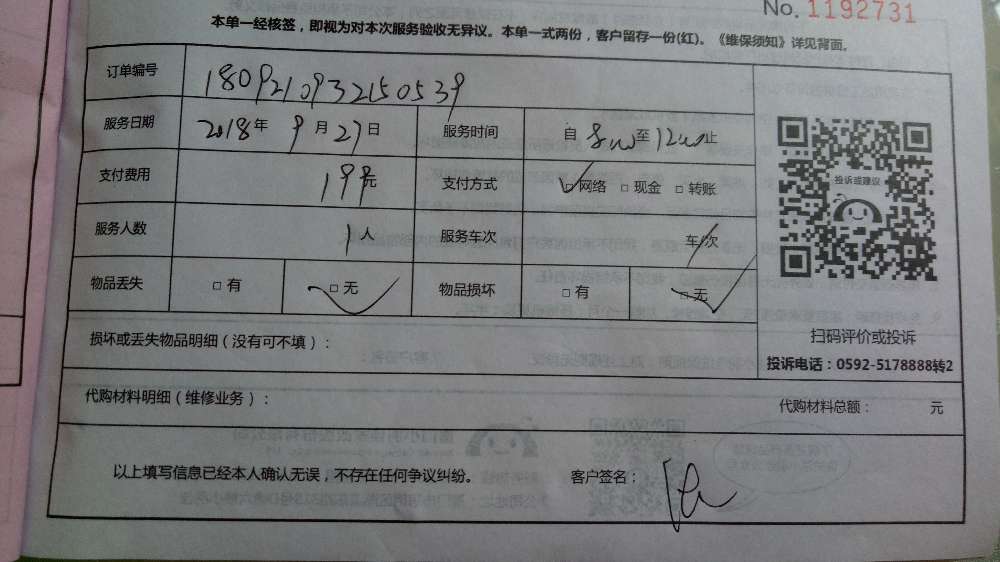 No. 1192731
本单一经核签，即视为对本次服务验收无异议。本单一式两份，客户留存一份(红)。《维保须知》详见背面。
订单编号 1809210932150539
服务日期 2018年 9月27日 服务时间 自 8:00 至 12:00 止
支付费用 199元 支付方式 □网络 □现金 □转账
投诉或建议
服务人数 1人 服务车次 车/次
物品丢失 □有 □无 物品损坏 □有 □无
损坏或丢失物品明细（没有可不填）：
扫码评价或投诉
投诉电话：0592-5178888转2
代购材料明细（维修业务）： 代购材料总额： 元
以上填写信息已经本人确认无误，不存在任何争议纠纷。 客户签名：